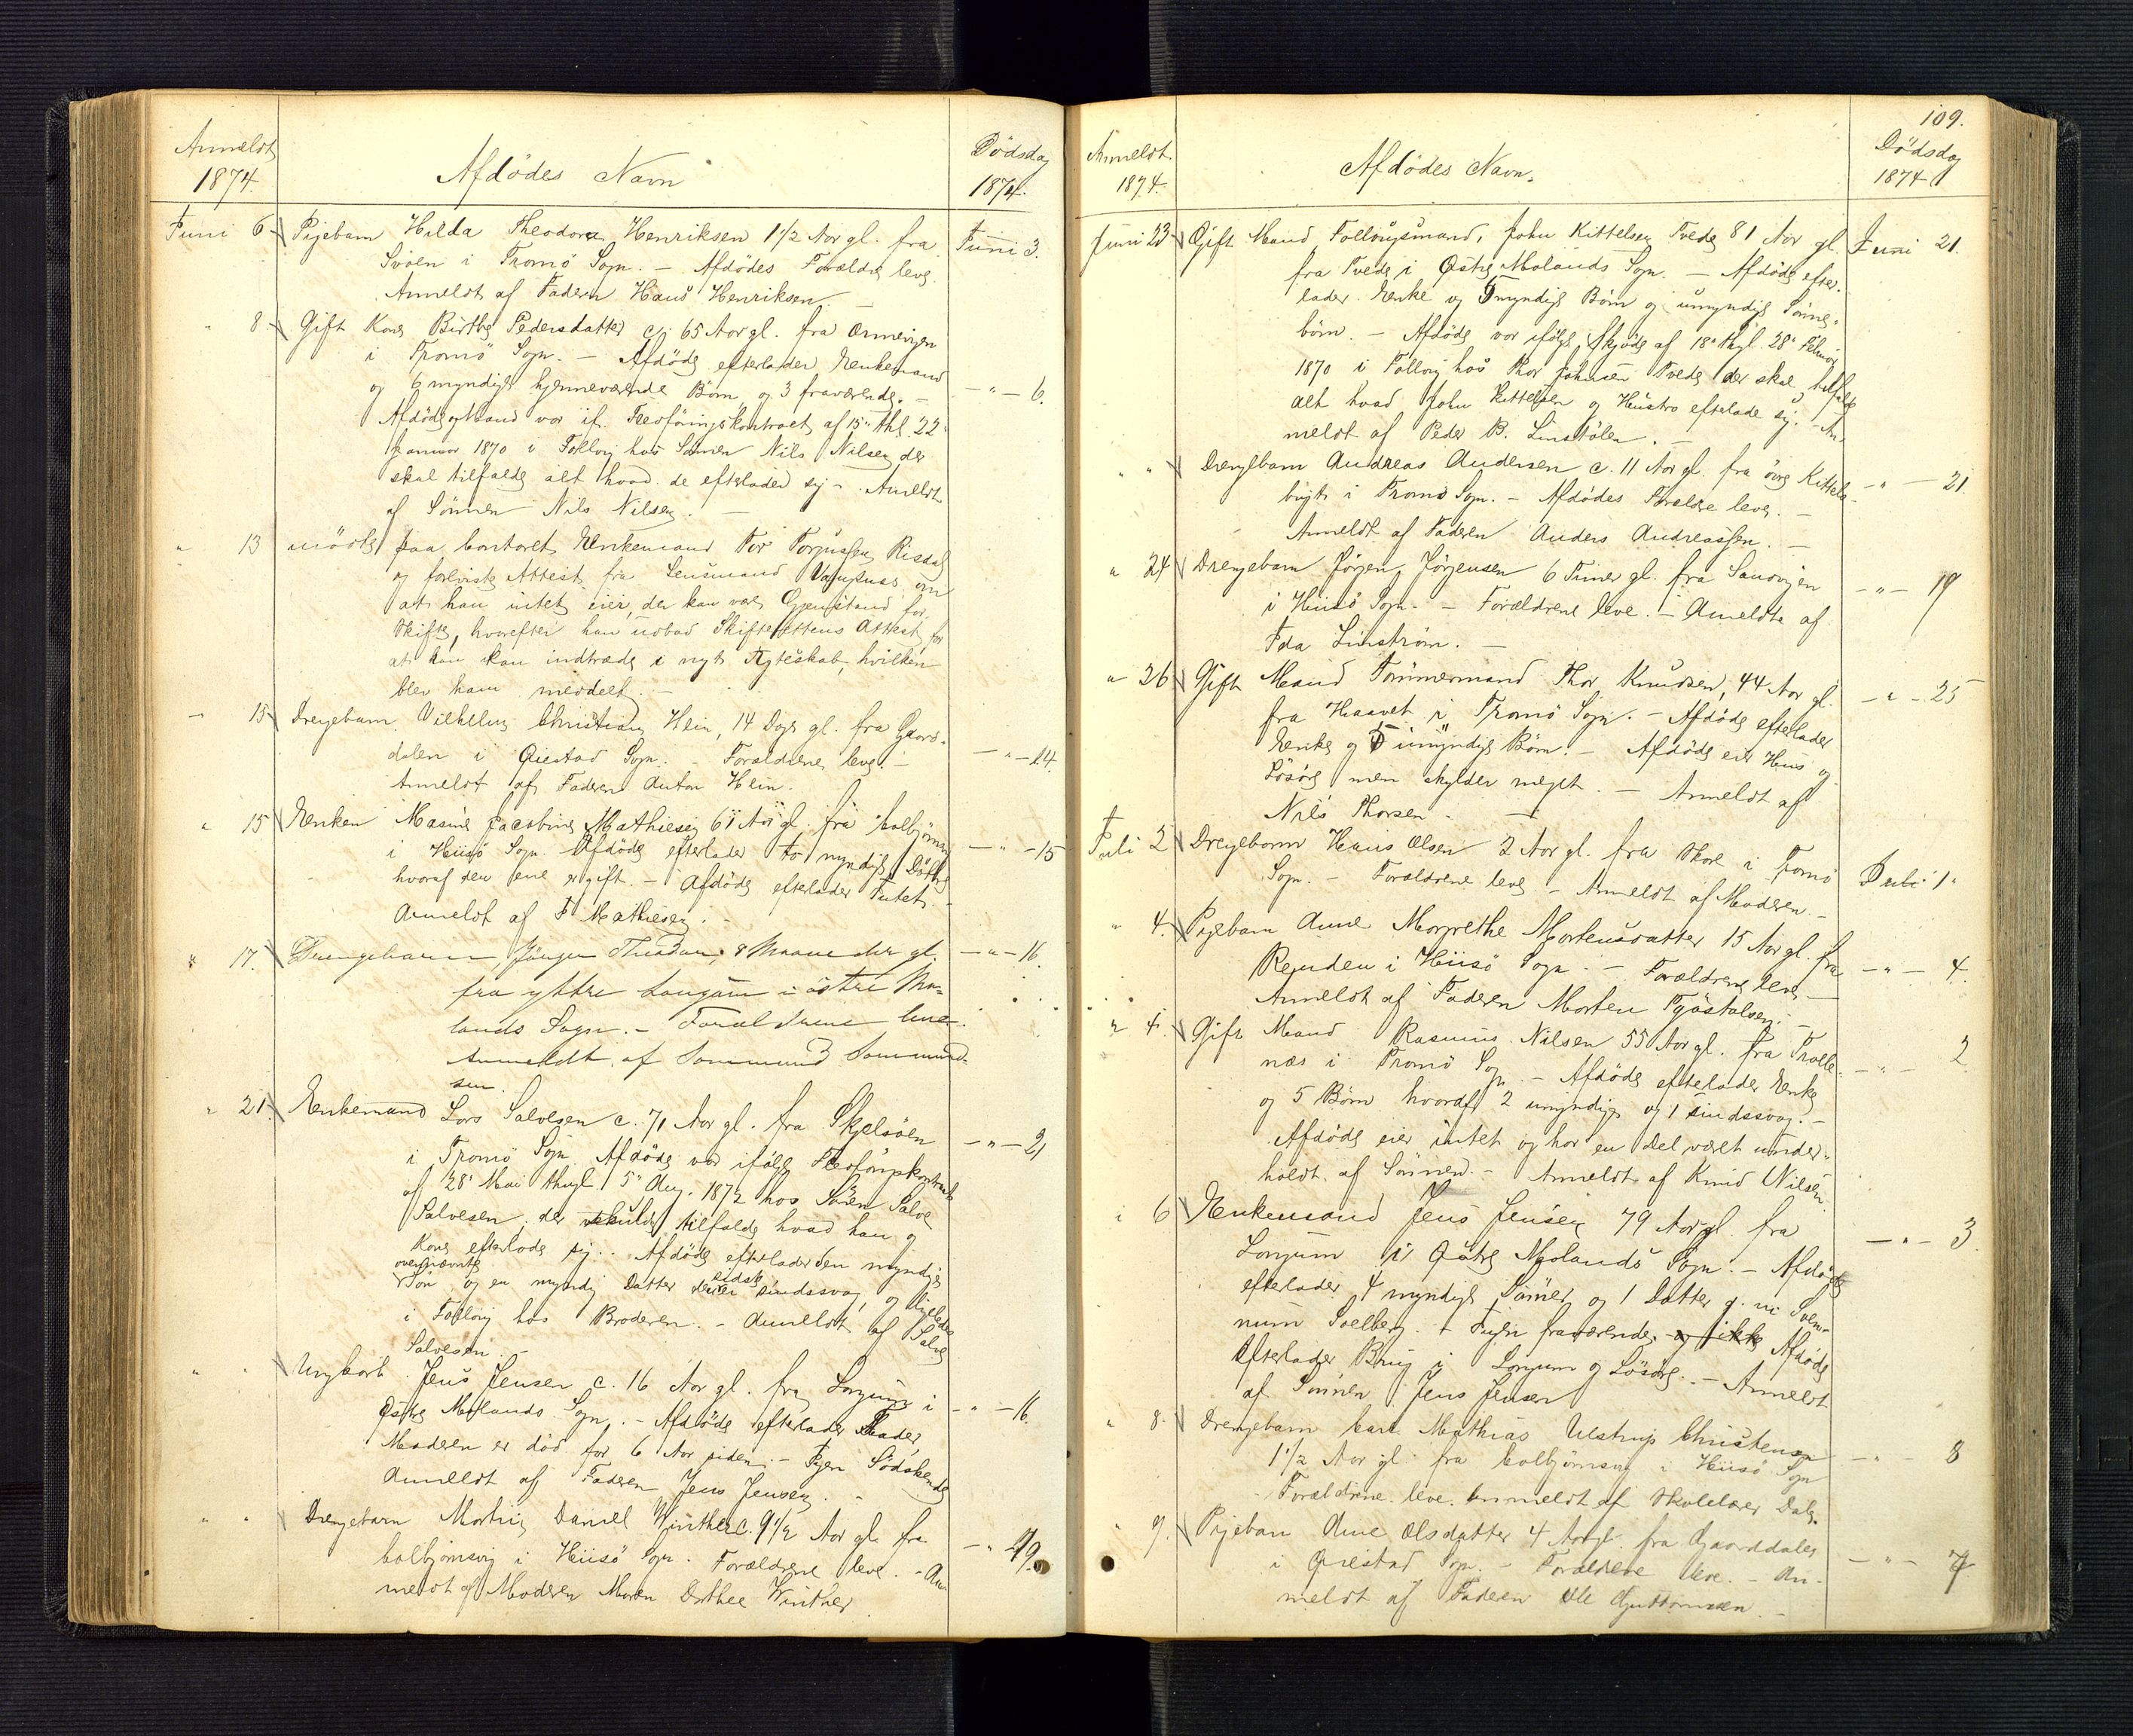 Anmeldt
1874
Afdödes Navn
Dödsdag
1874.
Juni 6 Pigebarn Hilda Theodora Henriksen 1 1/2 Aar gl. fra Juni 3.
Svöen i Tromö Sogn. – Afdödes Forældre leve.
Anmeldt af Faderen Hans Henriksen –
" 8 Gift Kone Birthe Pedersdatter c. 65 Aar gl. fra
i Tromö Sogn. – Afdöde efterlader Enkemand
og 6 myndige hjemmeværende Börn og 3 fraværende. – – " – 6.
Afdöde og Mand var if. Flesföringskontract af 15' thl. 22'
Januar 1870 i Follog hos Sönnen Nils Nilsen der
skal tilfalde alt hvad de efterlader sig – Anmeldt
af Sönnen Nils Nilsen. –
" 13 mödte paa Contoret Enkemand Tor Torjussen Risdal
og foreviste Attest fra Lensmand om
at han intet eier, der kan være Gjenstand for
Skifte, hvorefter han udbad Skifterettens Attest for
at han kan indtræde i nyt Ægteskab, hvilken
blev ham meddelt. –
– 15 Drengebarn Vilhelm Christian Hein, 14 Dage gl. fra Gaars-
dalen i Öiestad Sogn. – Forældrene leve. – – " – 14.
Anmeldt af Faderen Anton Hein.
" 15 Enken Masine Jacobine Mathiesen 61 Aar gl. fra Colbjörns
i Hiisö Sogn. Afdöde efterlader to myndige Döttre – " – 15
hvoraf den ene er gift. – Afdöde efterlader Intet. –
Anmeldt af F Mathiesen. –
" 17. Drengebarn, Jörgen 8 Maaneder gl. – " – 16.
fra yttre Longum i östre Mo-
lands Sogn. – Forældrene leve.
Anmeldt af Sommund Sommund-
sen.
" 21 Enkemand Lars Salvesen c. 71 Aar gl. fra Skjelsöen – " – 21
i Tromö Sogn Afdöde var ifölge Flesföringskontract
af 28' Mai thgl 5' Aug. 1872 hos Sönen Salve
Salvesen, der skulde tilfalde hvad han og
Kone efterlode sig. Afdöde efterlader den myndige
overnævnte
Sön og en myndig Datter der er sindssvag, og
i Follog hos Broderen. – Anmeldt af Salve
Salvesen. –
" " Ungkarl Jens Jensen c. 16 Aar gl. fra Longum i – " – 16.
Östre Molands Sogn. – Afdöde efterlader Fader,
Moderen er död for 6 Aar siden. – Ingen Södskende
Anmeldt af Faderen Jens Jensen. –
" " Drengebarn Martin Daniel Winther c. 9 1/2 Aar gl. fra
Colbjörnsvig i Hiisö Sogn. Forældrene leve. – An- – " 19.
meldt af Moderen Maren Dorthee Winther
109.
Anmeldt.
1874.
Afdödes Navn.
Dödsdag
1874
Juni 23 Gift Mand Follougsmand, John Kittelsen Tvede 81 Aar gl. Juni 21.
fra Tvede i Östre Molands Sogn. – Afdöde efter-
lader Enke og myndige Börn og umyndige Sönne-
börn. – Afdöde var ifölge Skjöde af 18' thgl. 28' Februar
1870 i Follog hos Thor Johnsen Tvede der skal tilfalde
alt hvad John Kittelsen og Hustro efterlade sig. – An-
meldt af Peder B. Linstölen. –
" " Drengebarn Andreas Andersen c. 11 Aar gl. fra övre Kittels- – " – 21.
bugt i Tromö Sogn. – Afdödes Forældre leve. –
Anmeldt af Faderen Anders Andreassen. –
" 24 Drengebarn Jörgen Jörgensen 6 Timer gl. fra Sandvigen – " – 19
i Hiisö Sogn. – Forældrene leve. – Anmeldt af
Ida Linström. –
" 26 Gift Mand Tömmermand Thor Knudsen, 44 Aar gl. – " – 25
fra Haavet i Tromö Sogn. – Afdöde efterlader
Enke og 5 umyndige Börn. – Afdöde eier Huus og
Lösöre men skylder meget. – Anmeldt af
Nils Thorsen. –
Juli 2 Drengebarn Hans Olsen 2 Aar gl. fra Skare i Tromö Juli 1.
Sogn. – Forældrene leve. – Anmeldt af Moderen. –
" 4. Pigebarn Anne Margrethe Mortensdatter 15 Aar gl. fra – " – 4.
i Hiisö Sogn. – Forældrene leve –
Anmeldt af Faderen Morten –
" 4. Gift Mand Rasmus Nilsen 55 Aar gl. fra Trolle- – " – 2
næs i Tromö Sogn. – Afdöde efterlader Enke
og 5 Börn hvoraf 2 umyndige og 1 sindssvag. –
Afdöde eier intet og har en Del været under-
holdt af Sönnen. – Anmeldt af Knud Nilsen.
" 6 Enkemand Jens Jensen 79 Aar gl. fra – " – 3.
Longum i Östre Molands Sogn. – Afdöde
efterlader 4 myndige Sönner og 1 Datter g. m.
Ingen fraværende. og ikke Afdöde
efterlader Brug i Longum og Lösöre. – Anmeldt
af Sönnen Jens Jensen
" 8. Drengebarn Carl Mathias Ulstrup Christensen – " – 8
1 1/2 Aar gl fra Colbjörnsvig i Hiisö Sogn
Forældrene leve. Anmeldt af Skolelærer Dale.
" 9. Pigebarn Anne Olsdatter 4 Aar gl. fra Gaarddalen – " – 7
i Öiestad Sogn. – Forældrene leve. – An-
meldt af Faderen Ole Guttormsen –